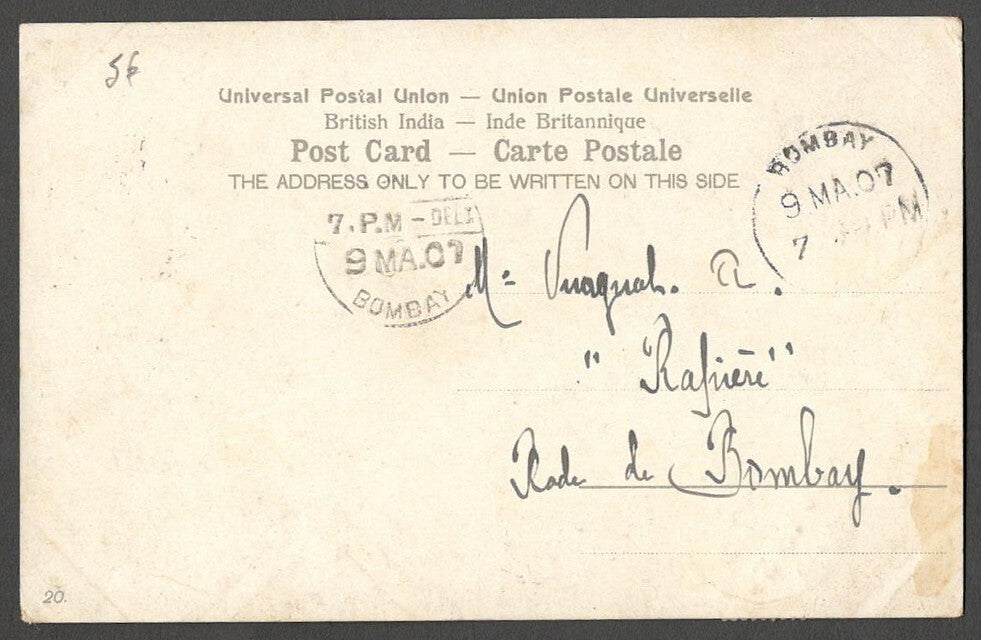 56
Universal Postal Union — Union Postale Universelle
British India — Inde Britannique
Post Card — Carte Postale
THE ADDRESS ONLY TO BE WRITTEN ON THIS SIDE
BOMBAY
9 MA.07
7 PM
7.P.M - DELY
9 MA.07
BOMBAY
Rade de Bombay.
20.